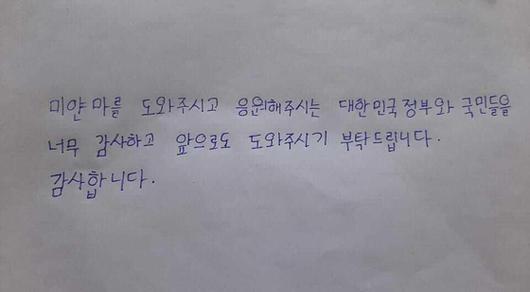 미얀마를 도와주시고 응원해주시는 대한민국 정부와 국민들을
너무 감사하고 앞으로도 도와주시기 부탁드립니다.
감사합니다.